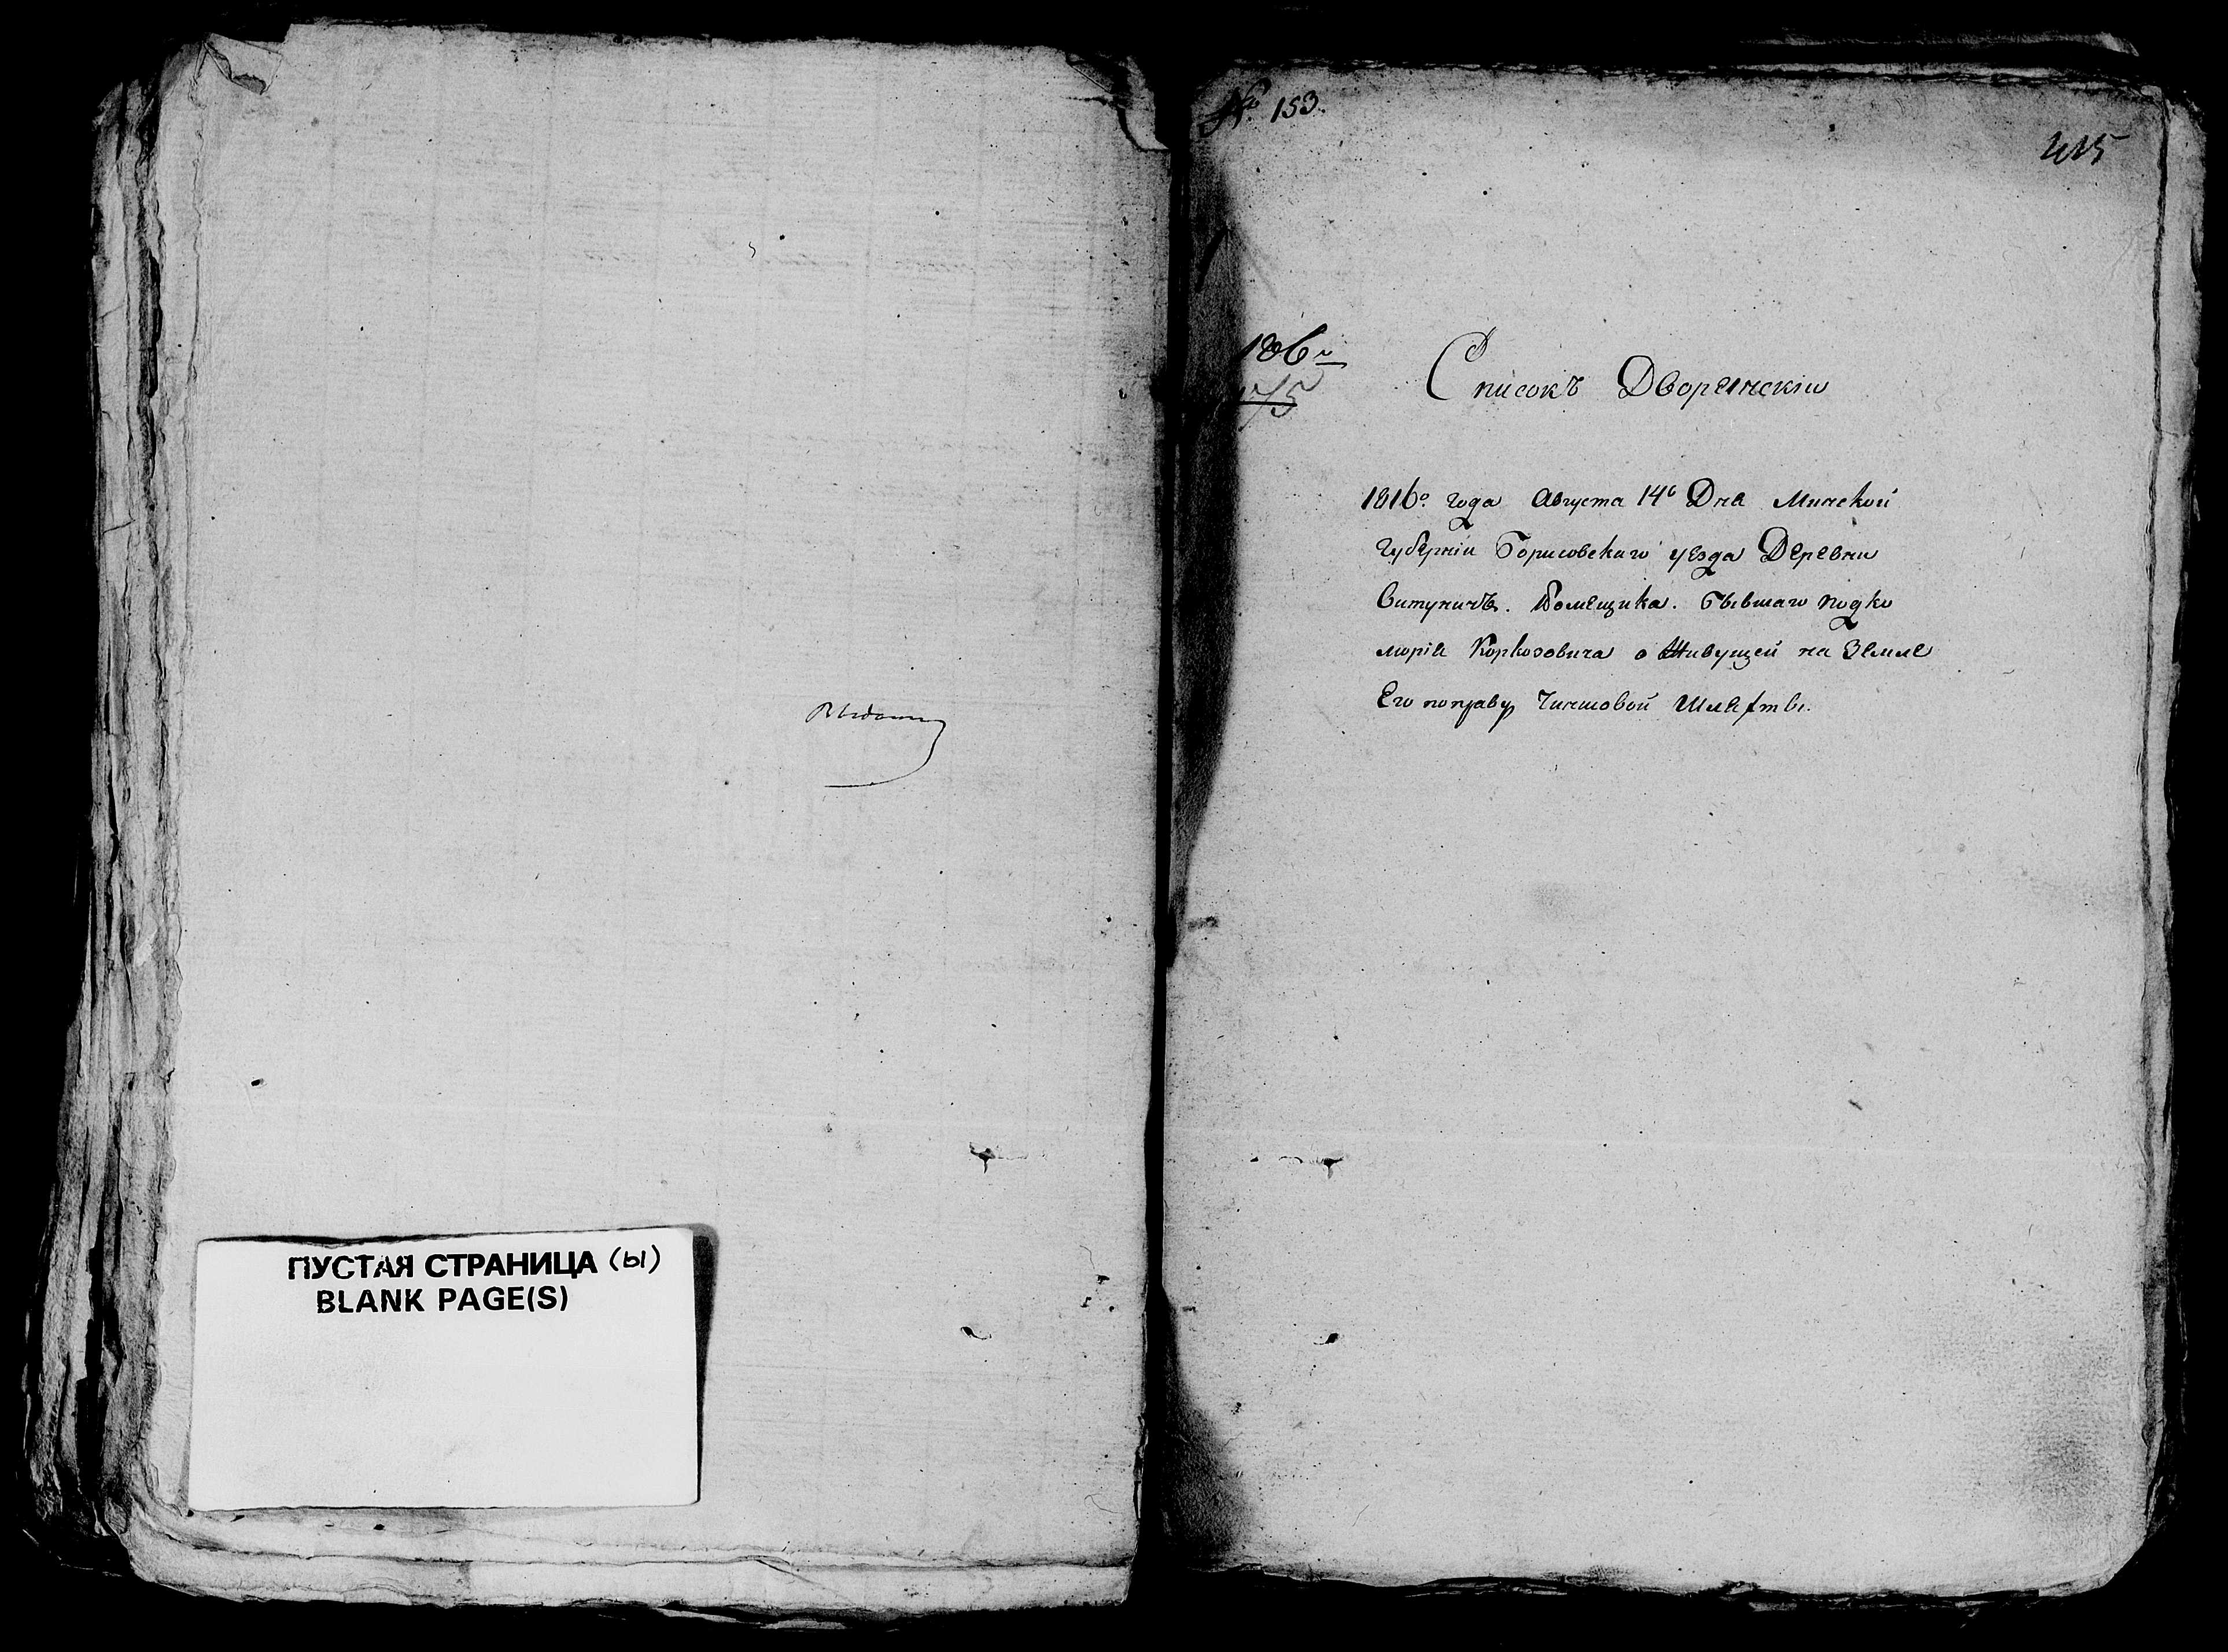 ПУСТАЯ СТРАНИЦА (ы)
BLANK PAGE(S)
№ 153.
415
186
Списокъ Дворянскіи
1816го года Августа 14го Дня Минской
губерніи Борисовскаго уезда Деревни
Витуничъ. Помещика. Бывшаго подко
морія Коркозовича о Живущей на Земле
Его поправу Чиншовой Шляхты.